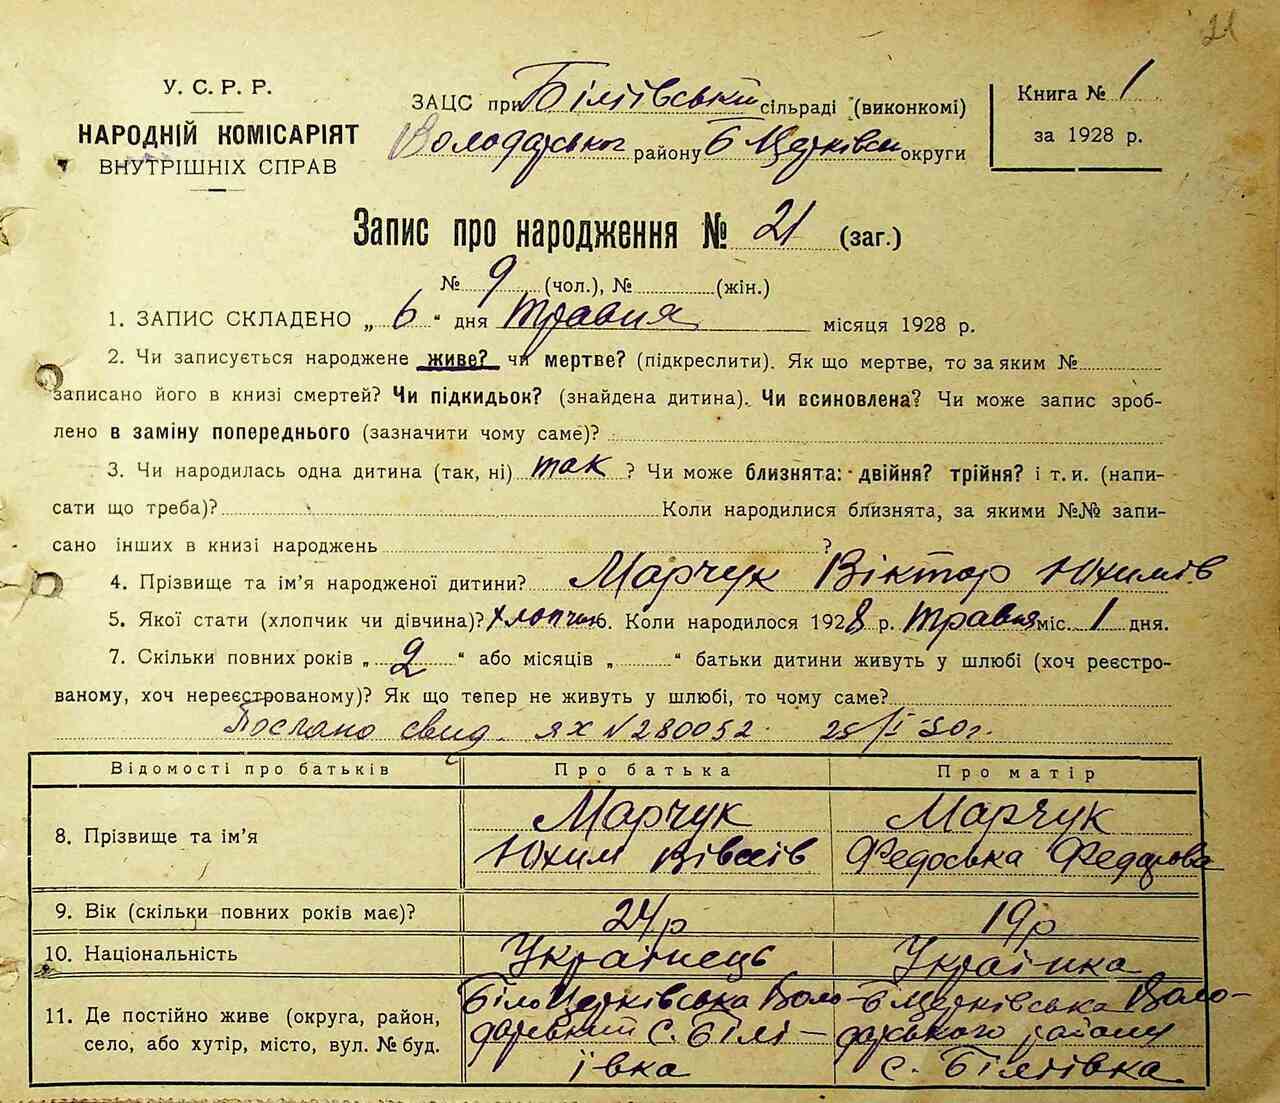 21
У. С. Р. Р.
НАРОДНІЙ КОМІСАРІЯТ
ВНУТРІШНІХ СПРАВ
ЗАЦС при Біліївській сільраді (виконкомі)
Володарського району Б Церківськ округи
Книга № 1
за 1928 р.
Запис про народження № 21 (заг.)
№ 9 (чол.), № (жін.)
1. ЗАПИС СКЛАДЕНО „ 6 “ дня травня місяця 1928 р.
2. Чи записується народжене живе? чи мертве? (підкреслити). Як що мертве, то за яким №
записано його в книзі смертей? Чи підкидьок? (знайдена дитина). Чи всиновлена? Чи може запис зроб-
лено в заміну попереднього (зазначити чому саме)?
3. Чи народилась одна дитина (так, ні) так ? Чи може близнята: двійня? трійня? і т. и. (напи-
сати що треба)? Коли народилися близнята, за якими №№ запи-
сано інших в книзі народжень ?
4. Прізвище та ім’я народженої дитини? Марчук Віктор Юхимів
5. Якої стати (хлопчик чи дівчина)? хлопчик 6. Коли народилося 1928 р. травня міс. 1 дня.
7. Скільки повних років „ 2 “ або місяців „ “ батьки дитини живуть у шлюбі (хоч реєстро-
ваному, хоч нереєстрованому)? Як що тепер не живуть у шлюбі, то чому саме?
Послано свид. ЯХ N 280052 25/I 50г.
Відомості про батьків Про батька Про матір
8. Прізвище та ім’я Марчук Марчук
Юхим Вівсеїв Федоська Федорова
9. Вік (скільки повних років має)? 24 р 19 р
10. Національність Українець Українка
11. Де постійно живе (округа, район, Біло Церківська Воло- Б Церківська Воло-
село, або хутір, місто, вул. № буд. дарський с. Білі- дарського району
ївка с. Біліївка